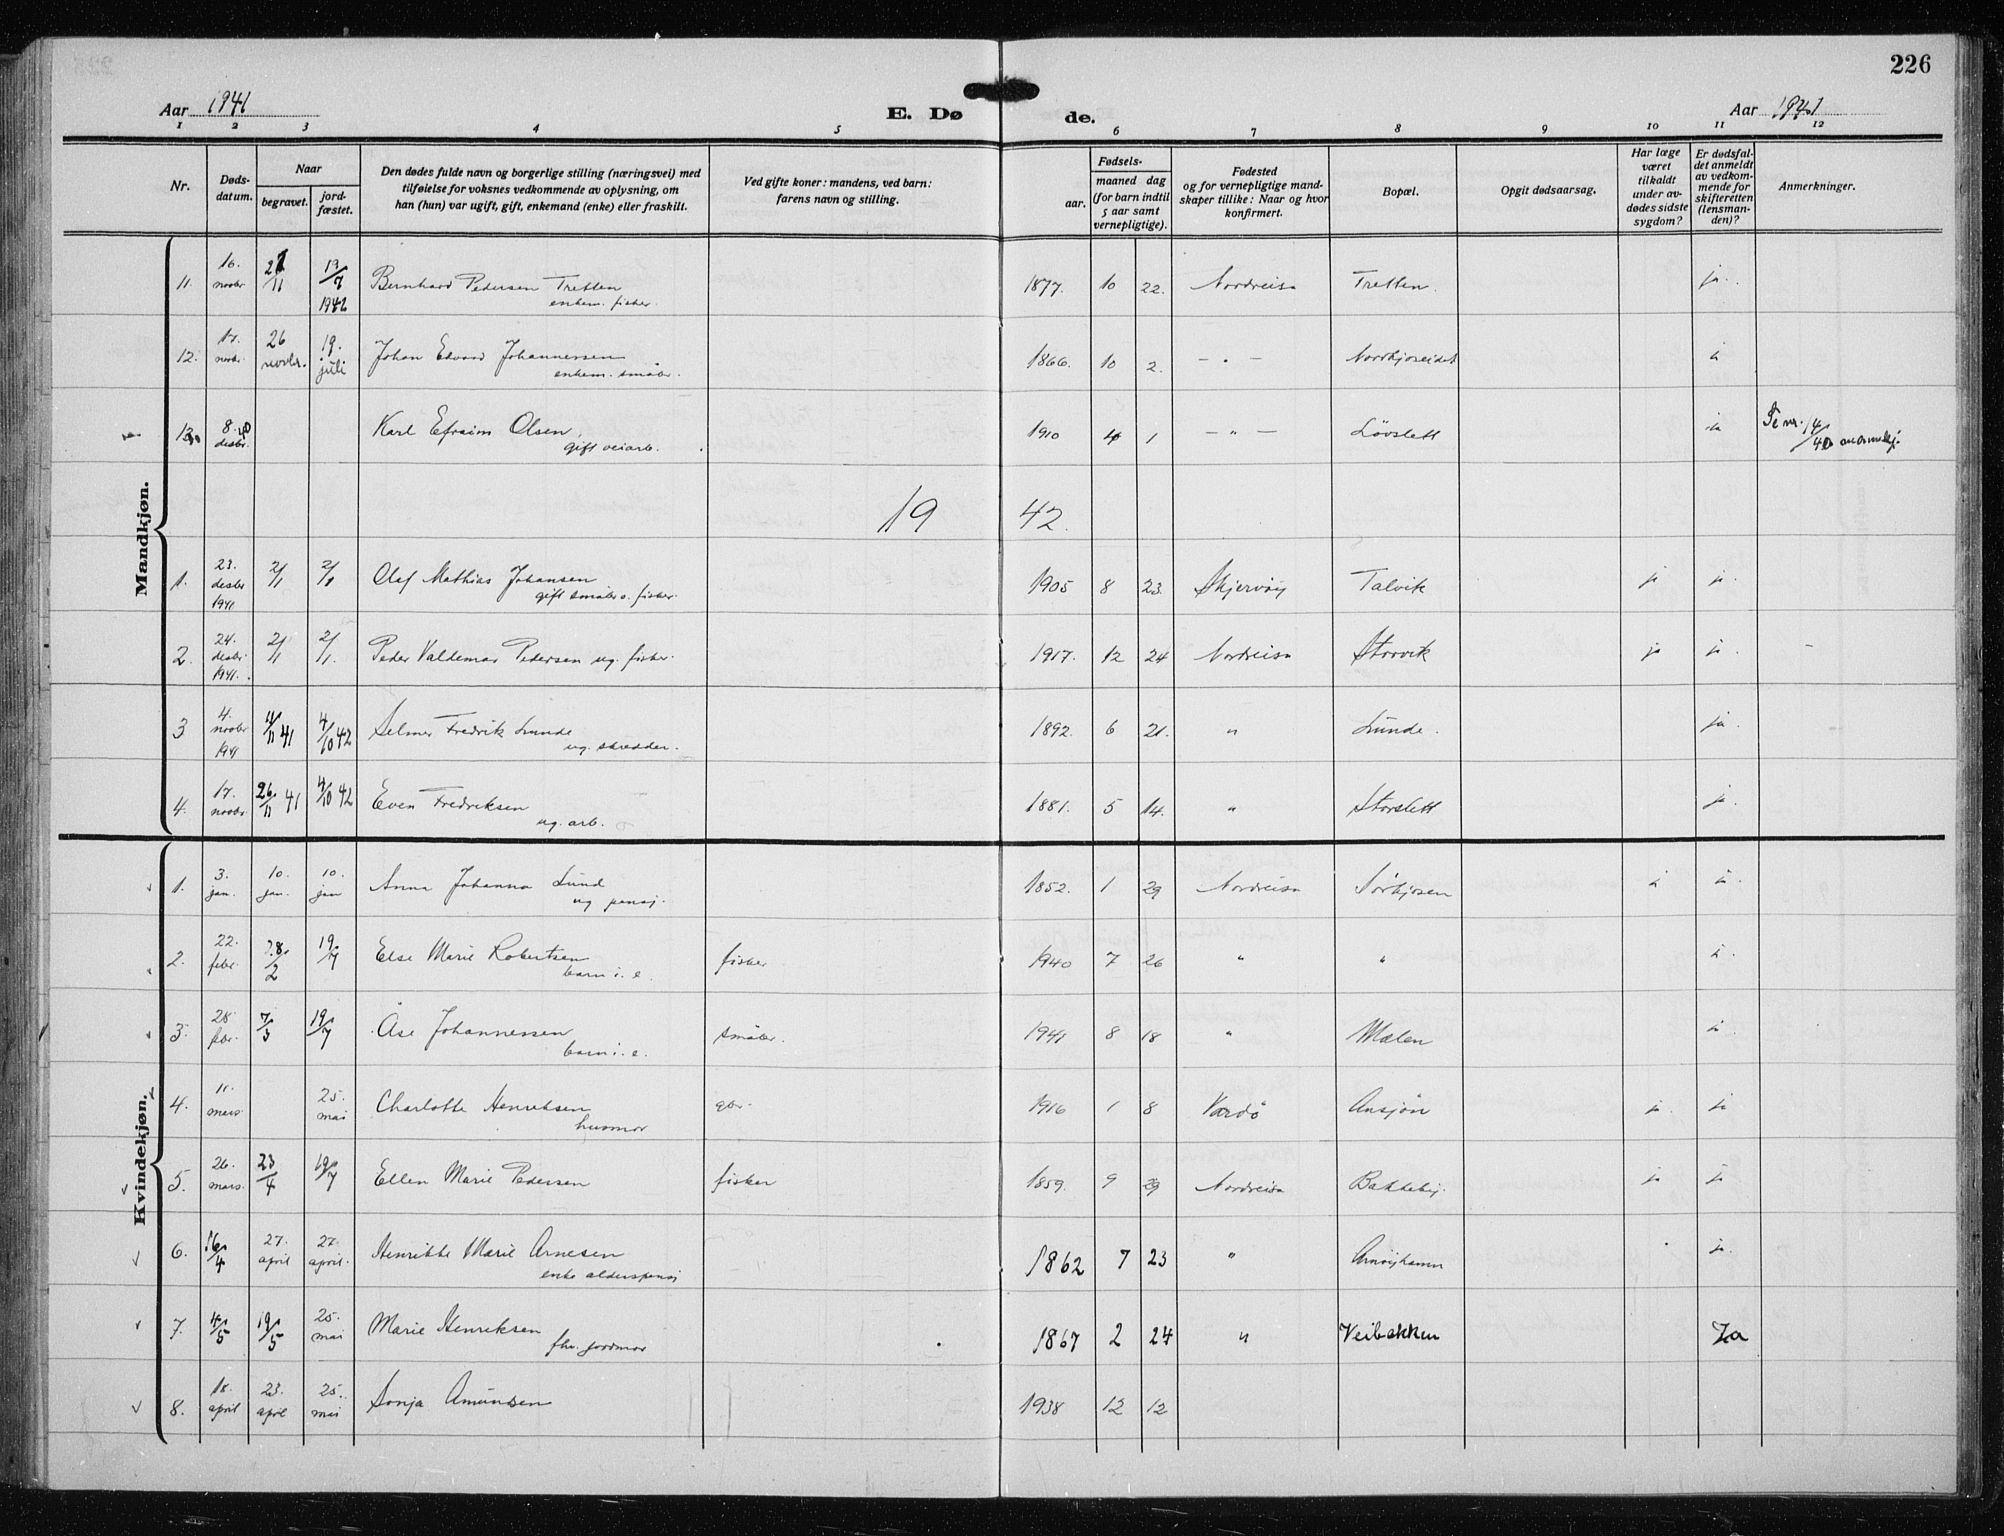 226
Aar 1941 E. Døde. Aar 1941
1 2 3 4 5 6 7 8 9 10 11 12
Nr. Døds-datum. Naar begravet. jord-fæstet. Den dødes fulde navn og borgerlige stilling (næringsvei) med tilføielse for voksnes vedkommende av oplysning, om han (hun) var ugift, gift, enkemand (enke) eller fraskilt. Ved gifte koner: mandens, ved barn: farens navn og stilling. Fødsels- aar. maaned dag (for barn indtil 5 aar samt vernepligtige). Fødested og for vernepligtige mand-skaper tillike: Naar og hvor konfirmert. Bopæl. Opgit dødsaarsag. Har læge været tilkaldt under av-dødes sidste sygdom? Er dødsfal-det anmeldt av vedkom-mende for skifteretten (lensman-den)? Anmerkninger.
Mandkjøn.
11. 16. novbr 21/11 19/7 1942 Bernhard Pedersen Tretten enkem. fisker. 1877. 10 22. Nordreisa Tretten. ja.
12. 17. novbr. 26 novbr. 19. juli Johan Edvard Johannessen enkem. småbr. 1866. 10 2. — " — Nordkjoseidet ja
13. 8. desbr. 40 Karl Efraim Olsen gift veiarb. 1910 4 1 — " — Lövslett ja
1942.
1. 23. desbr 1941 2/1 2/1 Olaf Mathias Johansen gift småbr o. fisker. 1905 8 23. Skjervöy Talvik ja ja.
2. 24. desbr. 1941. 2/1 2/1. Peder Valdemar Pedersen ug. fisker. 1917. 12 24 Nordreisa Storvik ja ja.
3 4. novbr 1941 11/11 41 4/10 42 Selmer Fredrik Lunde ug. skredder. 1892. 6 21. " Lunde. ja.
4. 17. novbr 26/11 41 4/10 42 Even Fredriksen ug. arb. 1881. 5 14. " Storslett ja.
Kvindekjøn.
1. 3. jan. 10. jan. 10. jan Anna Johanna Lund ug pensj. 1852. 1 29 Nordreisa Sörkjosen ja ja.
2. 22. febr. 28/2 19/7 Else Marie Robertsen barn i. e. fisker 1940 7 26 " " ja.
3. 28. febr. 7/3 19/7 Åse Johannessen barn i. e. småbr. 1941 8 18 " Mælen ja
4. 11. mars. 25. mai Charlotte Henriksen husmor gbr. 1916 1 8 Vardö ja. ja
5. 26. mars. 23/4 19/7 Ellen Marie Pedersen fisker 1859. 9 29 Nordreisa Bakkeby. ja ja
6. 16/4 27. april 27. april. Henrikke Marie Arnesen enke alderspensj 1862 7 23 " ja.
7. 4/5 19/5 25. mai Marie Henriksen fhv. jordmor 1867 2 24 " Veibakken Ja
8. 18. april 23. april 25. mai Sonja Amundsen 1938 12 12